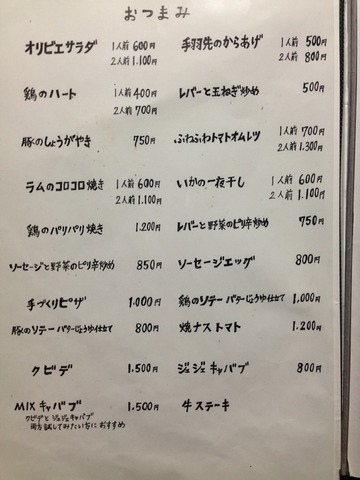 おつまみ
オリビエサラダ 1人前 600円
2人前 1.100円
手羽先のからあげ 1人前 500円
2人前 800円
鶏のハート 1人前 400円
2人前 700円
レバーと玉ねぎ炒め 500円
豚のしょうがやき 750円
ふわふわトマトオムレツ 1人前 700円
2人前 1.300円
ラムのコロコロ焼き 1人前 600円
2人前 1.100円
いかの一夜干し 1人前 600円
2人前 1.100円
鶏のパリパリ焼き 1.200円
レバーと野菜のピリ辛炒め 750円
ソーセージと野菜のピリ辛炒め 850円
ソーセージエッグ 800円
手づくりピザ 1.000円
鶏のソテー バターじょうゆ仕立て 1,000円
豚のソテー バターじょうゆ仕立て 800円
焼ナストマト 1.200円
クビデ 1,500円
ジュジェキャバブ 800円
MIXキャバブ 1,500円
クビデとジュジェキャバブ
両方試してみたい方におすすめ
牛ステーキ